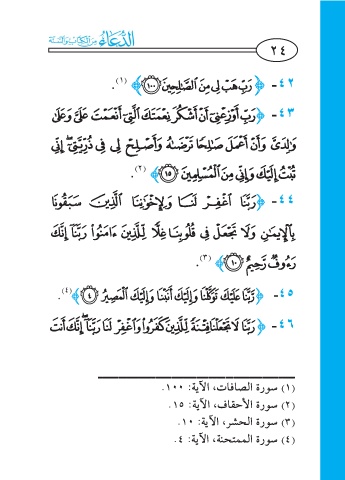 الدعاء من الكتاب والسنة
٢٤
٤٢- ﴿رَبِّ هَبْ لِي مِنَ الصَّالِحِينَ ١٠٠﴾ (١).
٤٣- ﴿رَبِّ أَوْزِعْنِي أَنْ أَشْكُرَ نِعْمَتَكَ الَّتِي أَنْعَمْتَ عَلَيَّ وَعَلَىٰ
وَالِدَيَّ وَأَنْ أَعْمَلَ صَالِحًا تَرْضَاهُ وَأَصْلِحْ لِي فِي ذُرِّيَّتِي ۖ إِنِّي
تُبْتُ إِلَيْكَ وَإِنِّي مِنَ الْمُسْلِمِينَ ١٥﴾ (٢).
٤٤- ﴿رَبَّنَا اغْفِرْ لَنَا وَلِإِخْوَانِنَا الَّذِينَ سَبَقُونَا
بِالْإِيمَانِ وَلَا تَجْعَلْ فِي قُلُوبِنَا غِلًّا لِّلَّذِينَ ءَامَنُوا رَبَّنَا إِنَّكَ
رَءُوفٌ رَّحِيمٌ ١٠﴾ (٣).
٤٥- ﴿رَّبَّنَا عَلَيْكَ تَوَكَّلْنَا وَإِلَيْكَ أَنَبْنَا وَإِلَيْكَ الْمَصِيرُ ٤﴾ (٤).
٤٦- ﴿رَبَّنَا لَا تَجْعَلْنَا فِتْنَةً لِّلَّذِينَ كَفَرُوا وَاغْفِرْ لَنَا رَبَّنَا ۖ إِنَّكَ أَنتَ
(١) سورة الصافات، الآية: ١٠٠.
(٢) سورة الأحقاف، الآية: ١٥.
(٣) سورة الحشر، الآية: ١٠.
(٤) سورة الممتحنة، الآية: ٤.